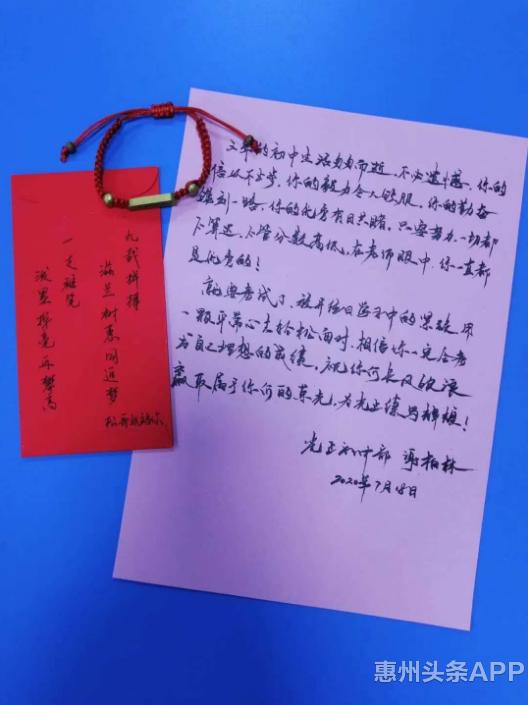 三年的初中生活匆匆而逝，不必遗憾，你的
自信从不言，你的毅力令人佩服，你的勤奋
一路，你的优秀有目共睹，只要努力，一切都
不算迟，不管分数高低，在老师眼中，你一直都
是优秀的！
就要考试了，放开给自己的
一颗平常心去轻松面对，相信你一定会考
出自己理想的成绩，祝你们长风破浪
赢取属于你们的荣光，为光正续写辉煌！
光正初中部 谢柏林
2020年7月18日
九载拼搏
滋兰树蕙同追梦
一支神笔
泼墨挥毫再攀高
惠州头条APP